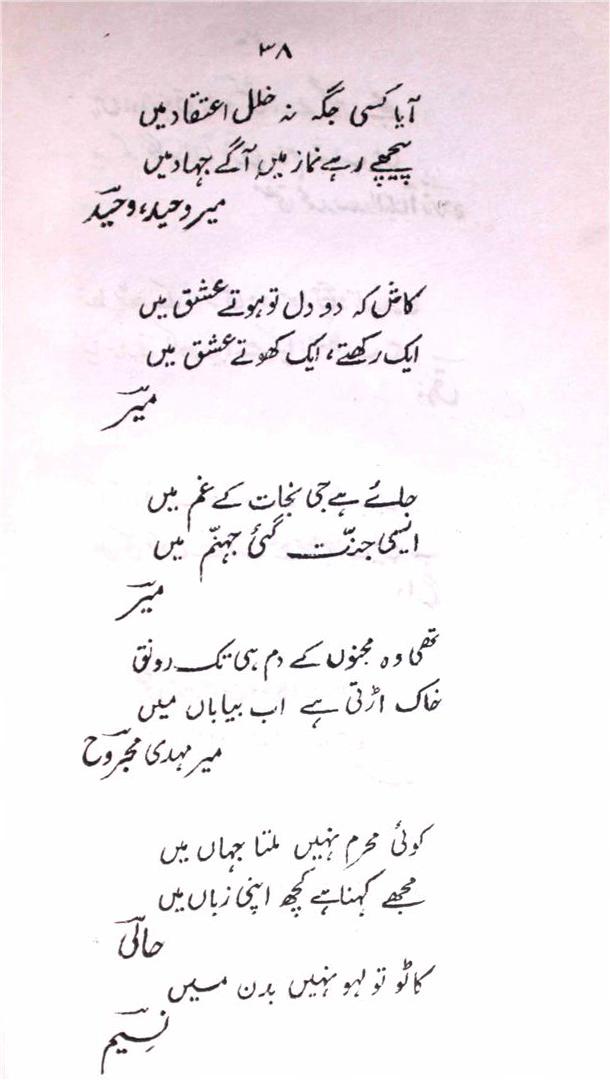 ۳۸
آیا کسی جگہ نہ خلل اعتقاد میں
پیچھے رہے نماز میں آگے جہاد میں
میر وحید، وحید
کاش کہ دو دل تو ہوتے عشق میں
ایک رکھتے، ایک کھوتے عشق میں
میر
جائے ہے جی نجات کے غم میں
ایسی جنّت گئی جہنّم میں
میر
تھی وہ مجنوں کے دم ہی تک رونق
خاک اڑتی ہے اب بیاباں میں
میر مہدی مجروح
کوئی محرم نہیں ملتا جہاں میں
مجھے کہنا ہے کچھ اپنی زباں میں
حالی
کاٹو تو لہو نہیں بدن میں
نسیم